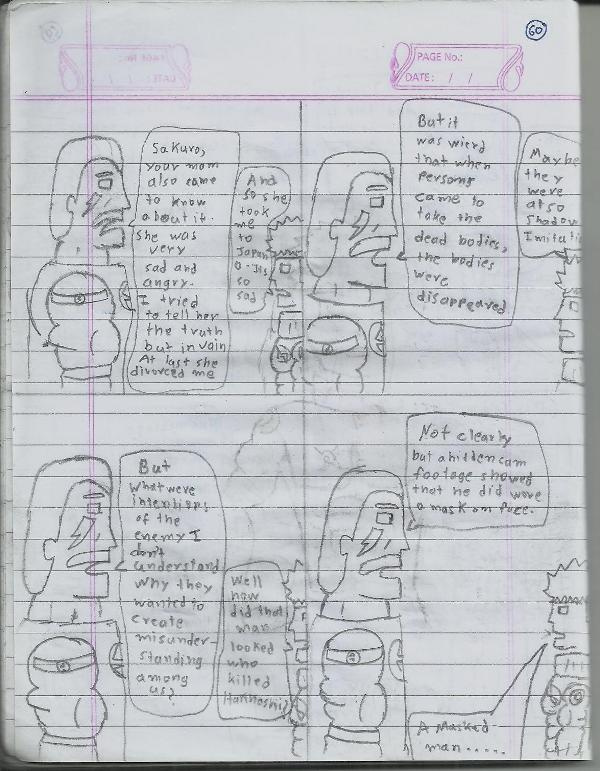 60
PAGE No.:
DATE: / /
Sakuro,
your mom
also came
to know
about it.
She was
very
sad and
angry.
I tried
to tell her
the truth
but in vain
At last she
divorced me
And
so she
took
me
to
Japan
so
sad
But it
was wierd
that when
persons
came to
take the
dead bodies,
the bodies
were
disappeared
Maybe
they
were
also
Shadow
But
what were
of the
enemy I
don't
understand
why they
wanted to
create
misunder-
standing
among
us?
Well
how
did that
man
looked
who
killed
Not clearly
but a hidden cam
footage showed
that he did wore
a mask on face.
A Masked
man.....